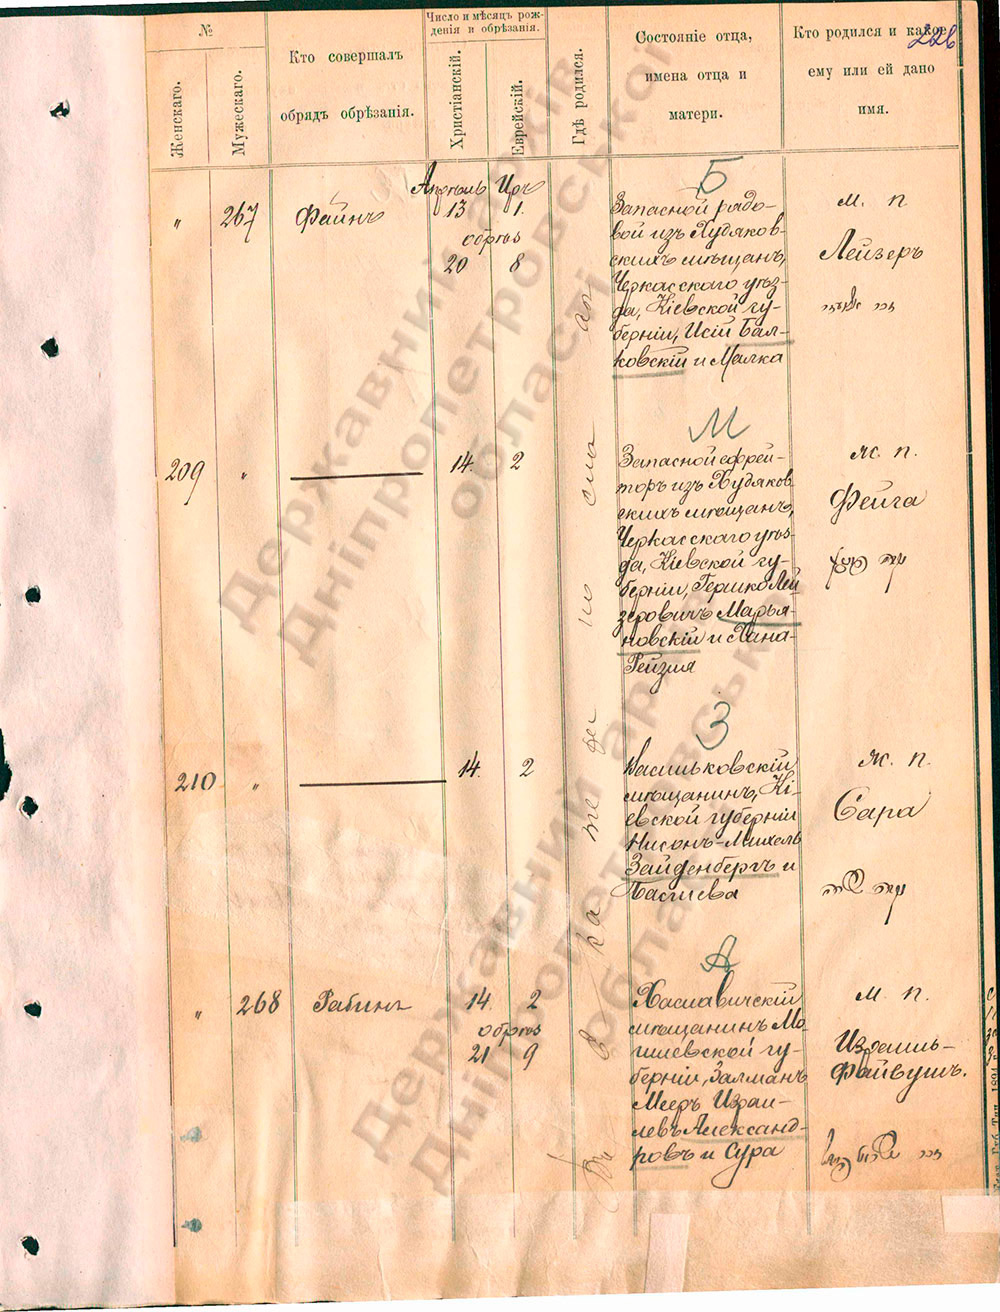 226
№
Женскаго.
Мужескаго.
Кто совершалъ
обрядъ обрѣзанія.
Число и мѣсяцъ рож-
денія и обрѣзанія.
Христіанскій.
Еврейскій.
Гдѣ родился.
Состояніе отца,
имена отца и
матери.
Кто родился и какое
ему или ей дано
имя.
Б
Апрѣль Иръ
„ 267 Файнъ 13 1.
обрѣз
20 8
Запасной рядо-
вой изъ Худяков-
скихъ мѣщанъ,
Черкасскаго уѣз-
да, Кіевской гу-
берніи, Исій Бал-
ковскій и Малка
м. п.
Лейзеръ
М
209 „ 14. 2
Запасной ефрей-
торъ изъ Худяков
скихъ мѣщанъ,
Черкасскаго уѣз-
да, Кіевской гу-
берніи, Гершко Лей
зеровичъ Марья-
новскій и Хана-
Рейзля
ж. п.
Фейга
З
210 „ 14. 2
Васильковскій
мѣщанинъ, Кі-
евской губерніи
Нисонъ-Михель
Зайденбергъ и
ж. п.
Сара
А
„ 268 Рабинъ 14. 2
обрѣз
21 9
Хославичскій
мѣщанинъ Мо-
гилевской гу-
берніи, Залманъ
Мееръ Израи-
левъ Александ-
ровъ и Сура
м. п.
Израиль-
Файвушъ.
Державний архів
Дніпропетровської
області
Державний архів
Дніпропетровської
області